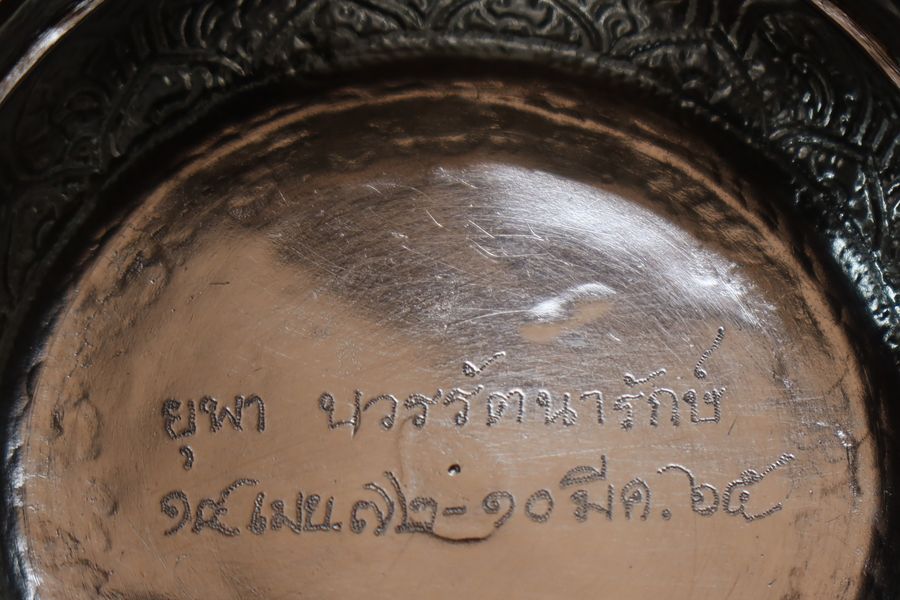 ยุพา บวรรัตนารักษ์
๑๕ เมย. ๗๒ - ๑๐ มีค. ๖๕